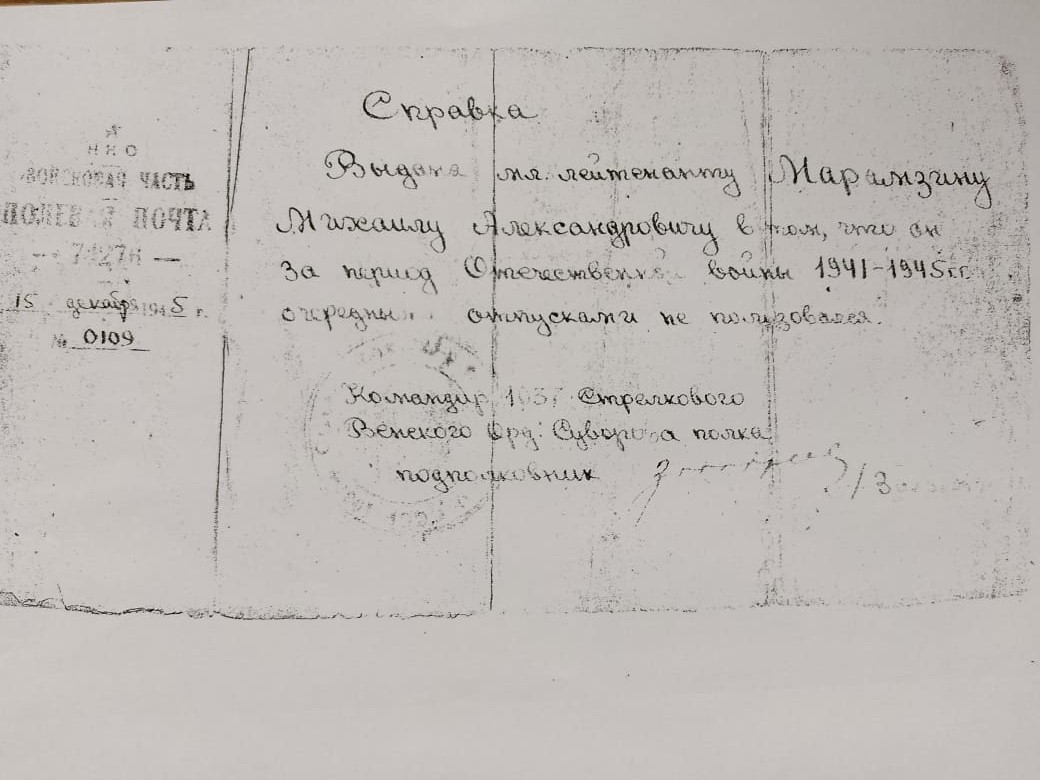 НКО
ВОЙСКОВАЯ ЧАСТЬ
ПОЛЕВАЯ ПОЧТА
15 декабря 1945 г.
№ 0109
Справка
Выдана мл. лейтенанту Марамзину
Михаилу Александровичу в том, что он
за период Отечественной войны 1941-1945 г.г.
очередным отпусками не пользовался.
Командир Стрелкового
Венского Орд. Суворова полка
подполковник